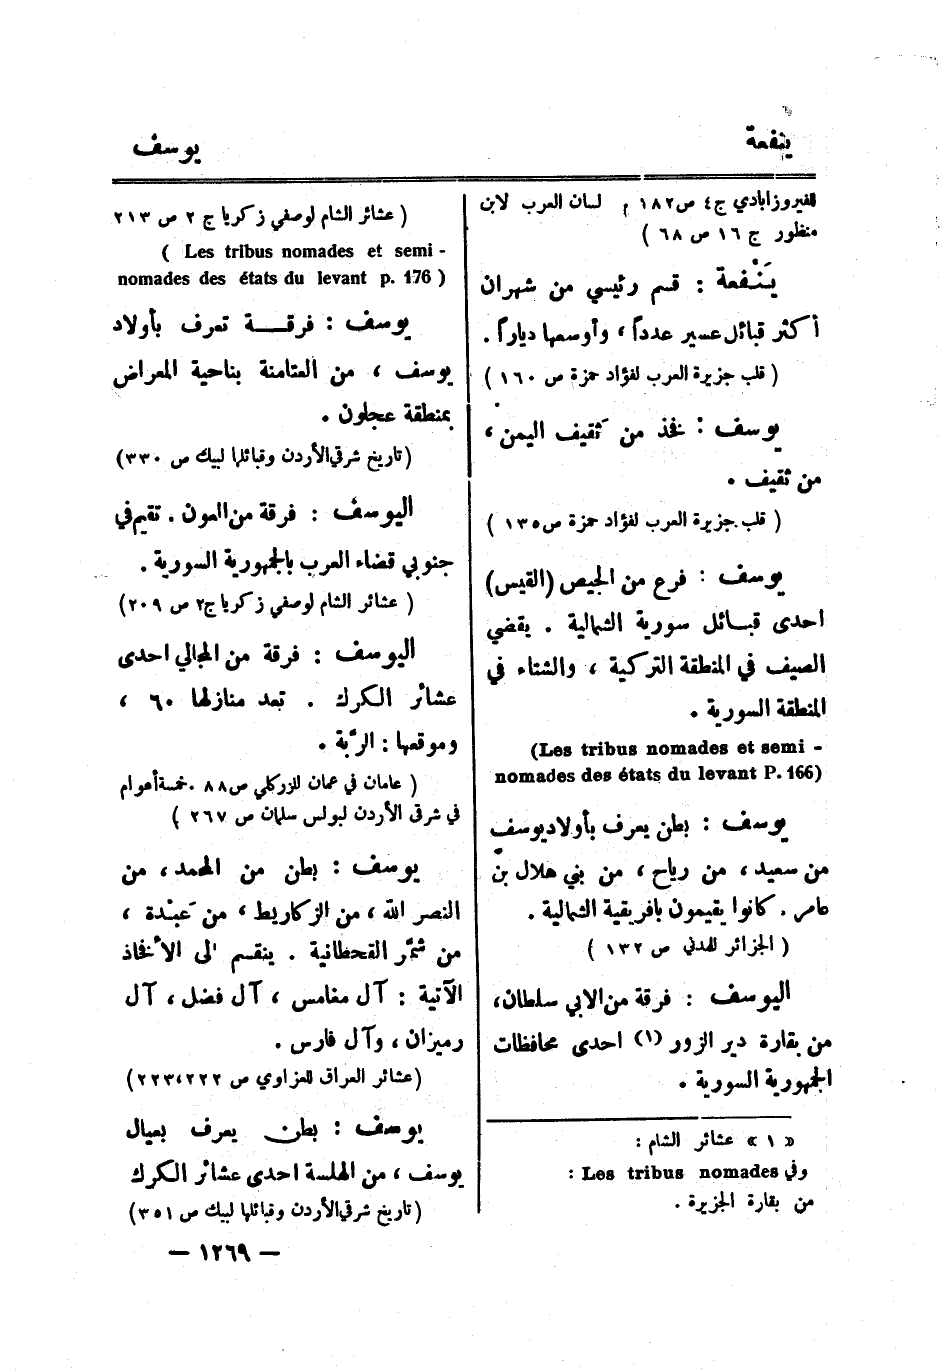 ينفعة
يوسف
للفيروزابادي ج٤ ص١٨٢ م لسان العرب لابن
منظور ج ١٦ ص ٦٨ )
يَنْفعة : قسم رئيسي من شهران
أكثر قبائل عسير عدداً ، وأوسعها دياراً .
( قلب جزيرة العرب لفؤاد حمزة ص ١٦٠ )
يوسف : فخذ من ثقيف اليمن ،
من ثقيف .
( قلب جزيرة العرب لفؤاد حمزة ص ١٣٥ )
يوسف : فرع من الجيص (القيس)
احدى قبائل سورية الشمالية . يقضي
الصيف في المنطقة التركية ، والشتاء في
المنطقة السورية .
(Les tribus nomades et semi -
nomades des états du levant P. 166)
يوسف : بطن يعرف بأولاد يوسف
من سعيد ، من رياح ، من بني هلال بن
عامر . كانوا يقيمون بافريقية الشمالية .
( الجزائر للمدني ص ١٣٢ )
اليوسف : فرقة من الابي سلطان،
من بقارة دير الزور (١) احدى محافظات
الجمهورية السورية .
« ١ » عشائر الشام :
وفي Les tribus nomades :
من بقارة الجزيرة .
( عشائر الشام لوصفي زكريا ج ٢ ص ٢١٣
( Les tribus nomades et semi -
nomades des états du levant p. 176 )
يوسف : فرقـــة تعرف بأولاد
يوسف ، من العتامنة بناحية المعراض
بمنطقة عجلون .
(تاريخ شرقي الأردن وقبائلها لبيك ص ٣٣٠)
اليوسف : فرقة من العون . تقيم في
جنوبي قضاء العرب بالجمهورية السورية .
( عشائر الشام لوصفي زكريا ج٢ ص ٢٠٩)
اليوسف : فرقة من المجالي احدى
عشائر الكرك . تعد منازلها ٦٠ ،
وموقعها : الربّة .
( عامان في عمان للزركلي ص ٨٨ . خمسة أعوام
في شرقي الأردن لبولس سلمان ص ٢٦٧ )
يوسف : بطن من المحمد ، من
النصر الله ، من الزكاريط ، من عَبْدة ،
من شمّر القحطانية . ينقسم الى الأفخاذ
الآتية : آل مغامس ، آل فضل ، آل
رميزان ، وآل فارس .
(عشائر العراق للعزاوي ص ٢٢٢،٢٢٣)
يوسف : بطن يعرف بعيال
يوسف ، من الهلسة احدى عشائر الكرك
(تاريخ شرقي الأردن وقبائلها لبيك ص ٣٥١)
— ١٢٦٩ —